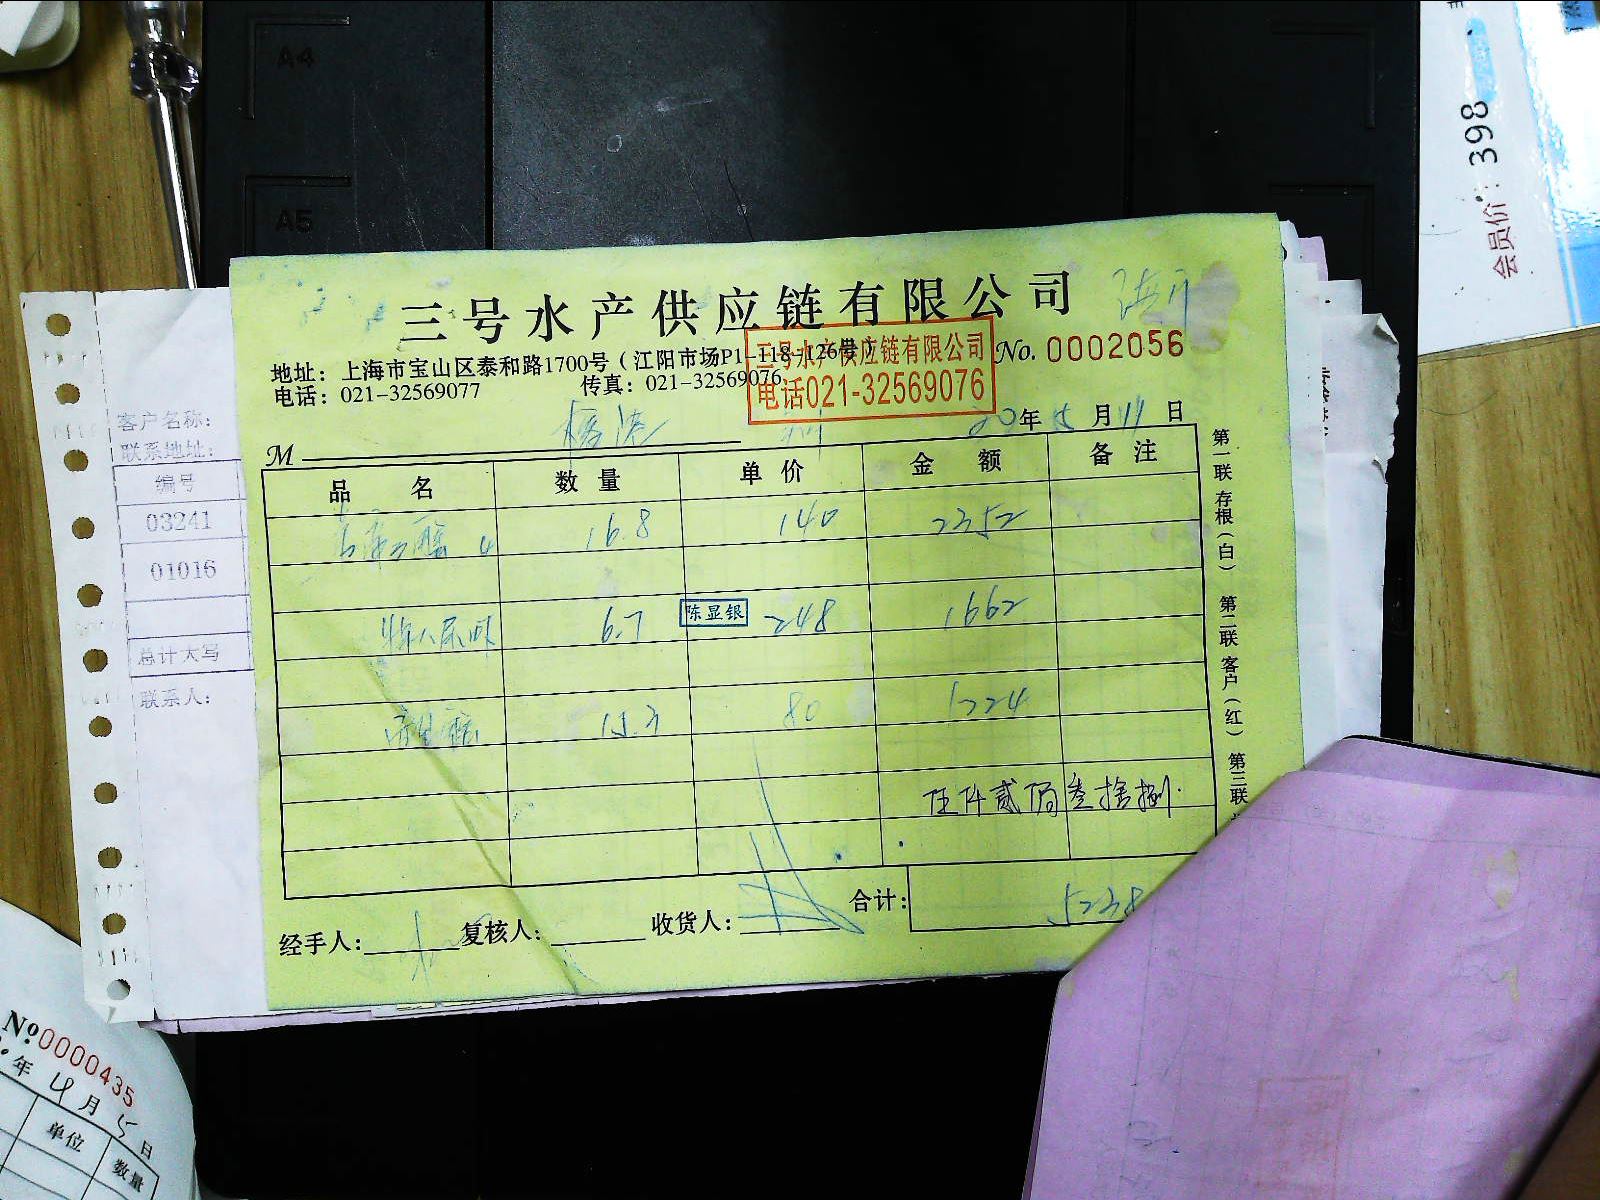 A4
A5
会员价：398
三号水产供应链有限公司
地址：上海市宝山区泰和路1700号（江阳市场P1-118-126号）
No. 0002056
电话：021-32569077
传真：021-32569076
三号水产供应链有限公司
电话021-32569076
20年 5月 11日
M
品名 数量 单价 金额 备注
16.8 140 2352
6.7 248 1662
陈显银
15.3 80 1224
伍仟贰佰叁拾捌
合计： 5238
经手人： 复核人： 收货人：
第一联 存根（白） 第二联 客户（红） 第三联
客户名称：
联系地址：
编号
03241
01016
总计大写
联系人：
No 0000435
年 4月 5日
单位 数量